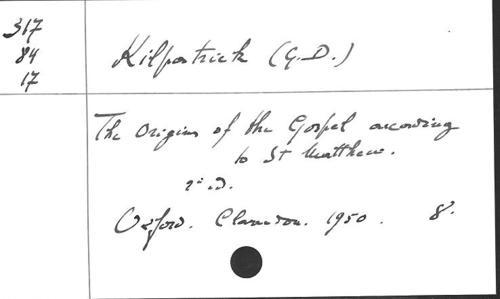 317
84
17
Kilpatrick (G.D.)
The Origins of the Gospel according
to St Matthew.
2° ed.
Oxford. Clarendon. 1950. 8.